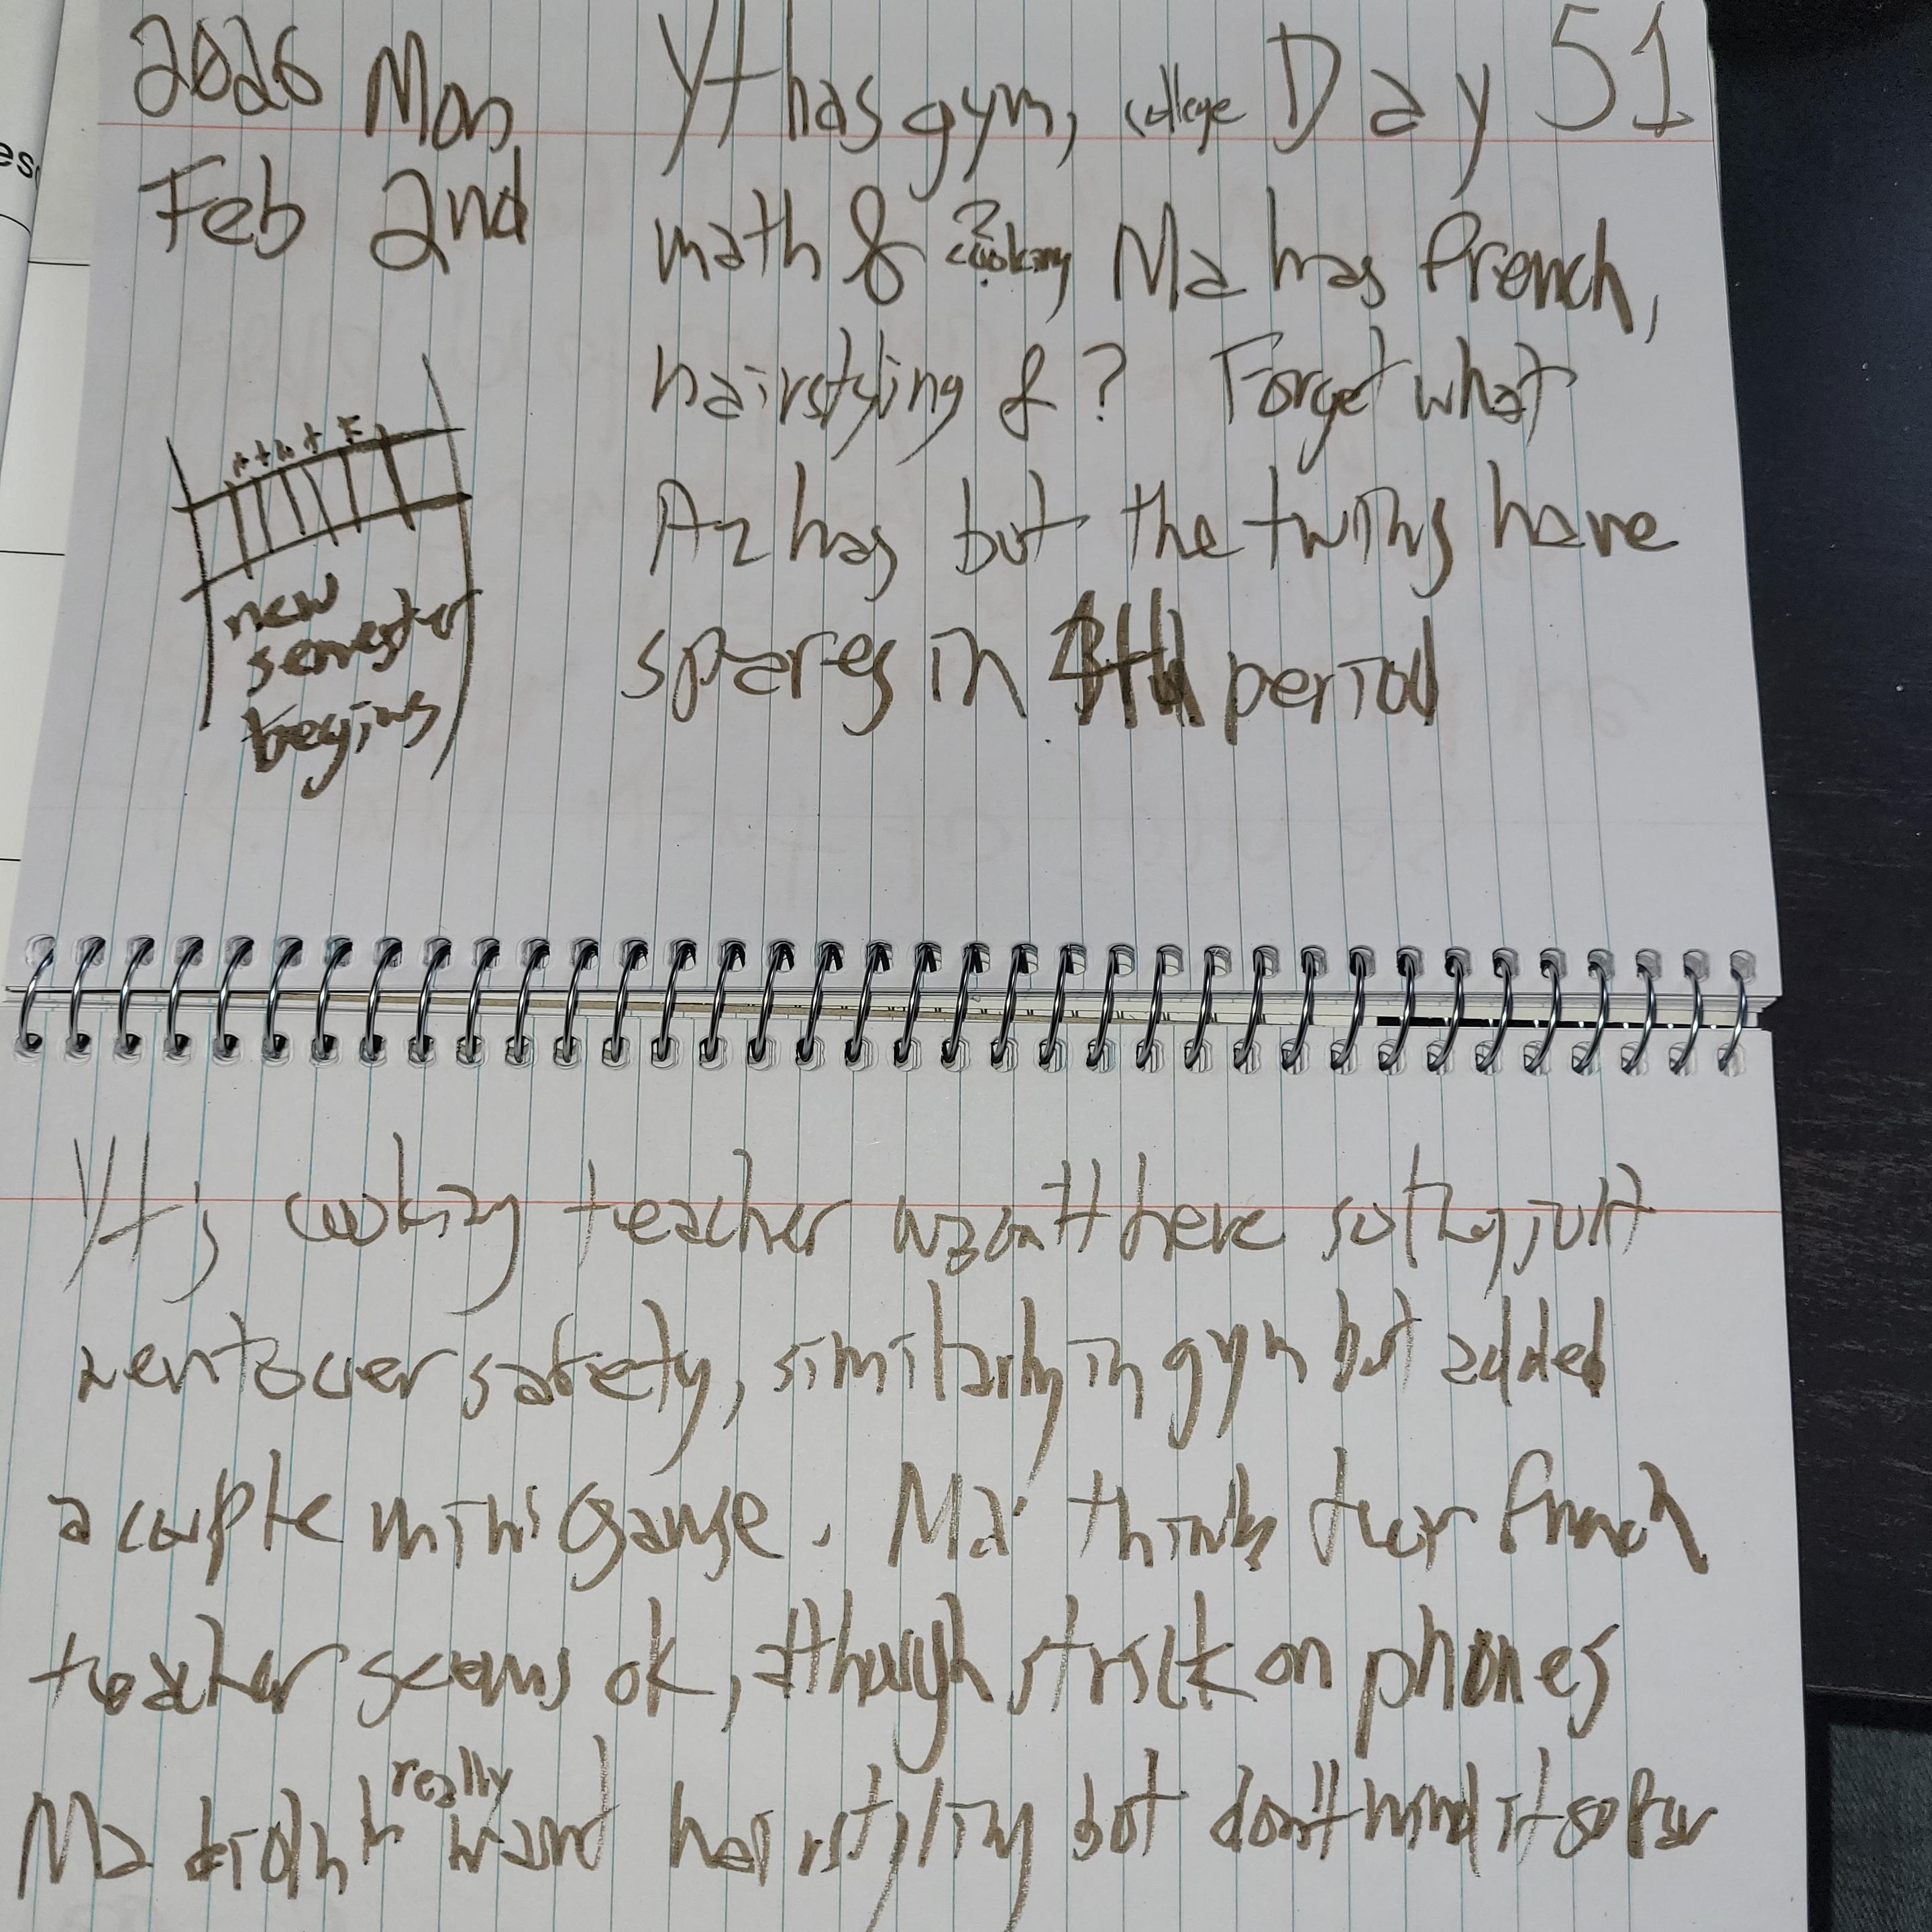 2026 Mon
Feb 2nd
Yt has gym, college Day 51
math & ? cooking Ma has french,
hairstyling & ? Forget what
Az has but the twins have
spares in period
new
semester
begins
Yt's cooking teacher wasn't here so they just
went over safety, similarly in gym but added
a couple mini games. Ma thinks their french
teacher seems ok, although strict on phones
Ma didn't really want hairstyling but don't mind it so far